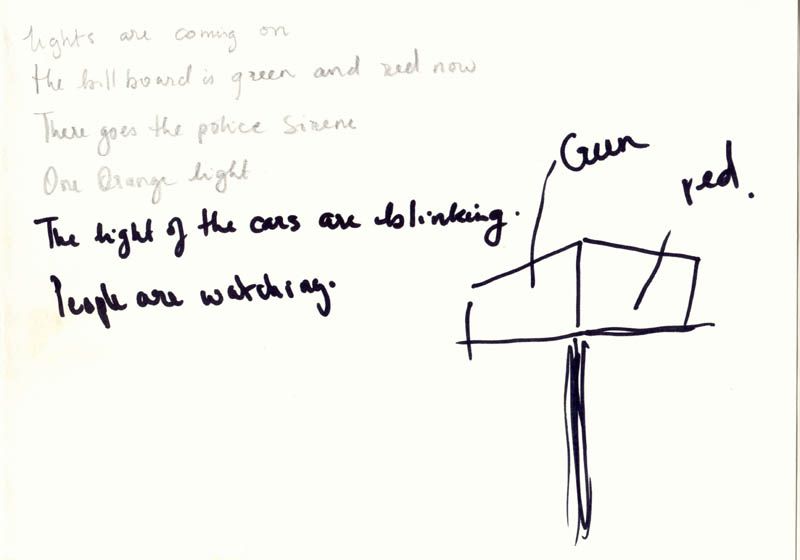 lights are coming on
the billboard is green and red now
There goes the police Sirene
One Orange light
The light of the cars are blinking.
People are watching.
Green
red.